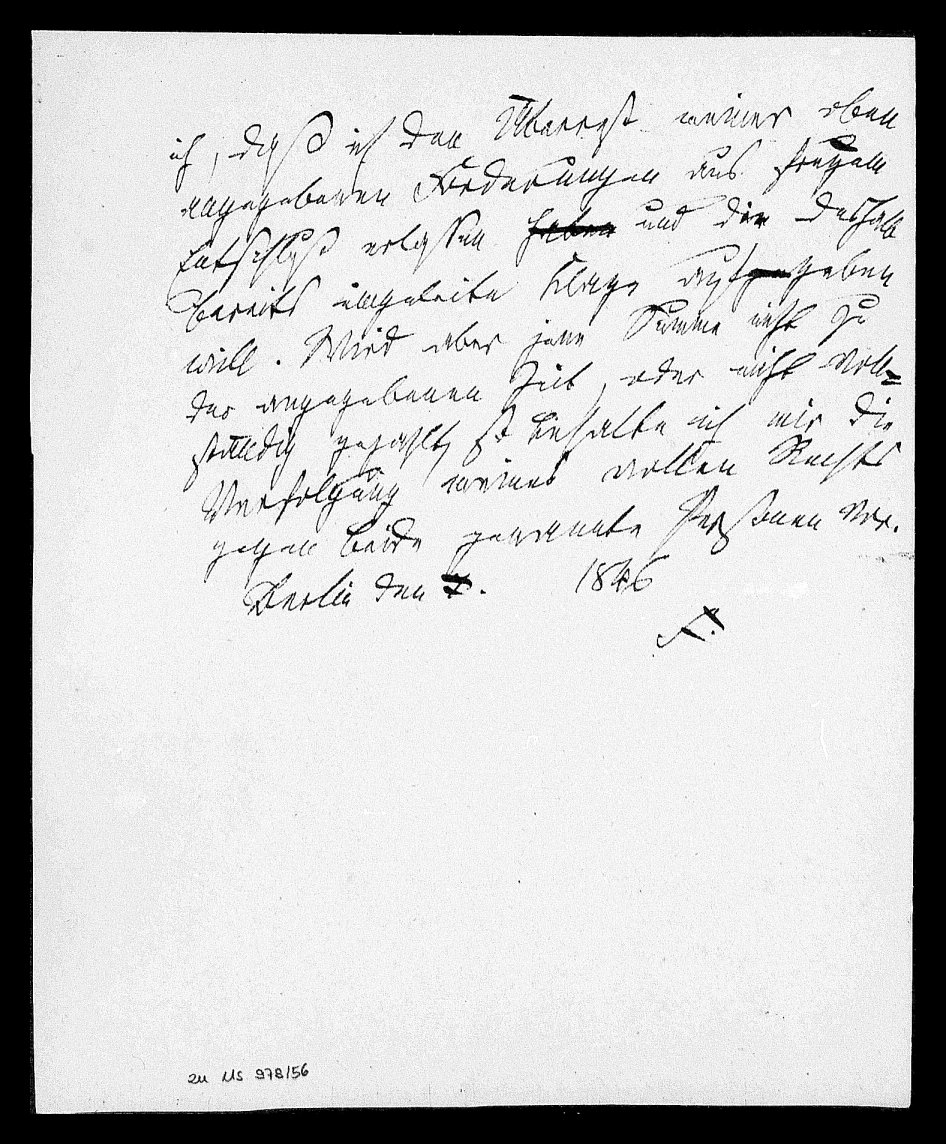 ich, daß ich den Überrest meiner oben
angegebenen Forderungen aus freyem
Entschluß erlassen haben und die deshalb
bereits eingeleite Klage aufgegeben
will. Wird aber jene Summe nicht zu
der angegebenen Zeit, oder nicht voll=
ständig gezahlt, so behalte ich mir die
Verfolgung meines vollen Rechts
gegen beide genannte Personen vor.
Berlin den 1846
F.
zu MS 978/56